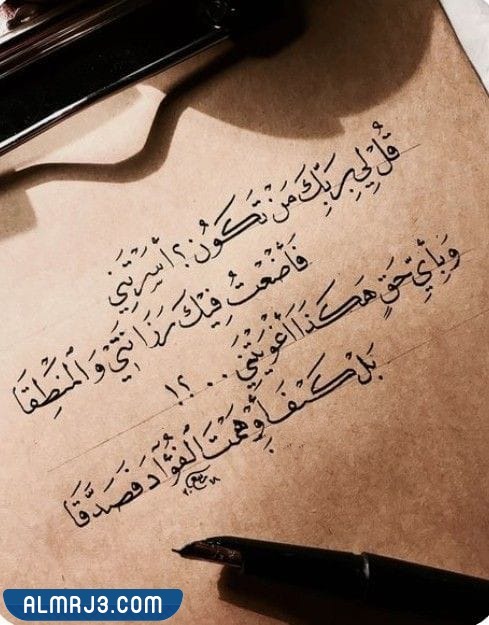 قُلْ لِي بِرَبِّكَ مَنْ تَكُونُ؟ أَسَرْتَنِي
فَأَضَعْتُ فِيْكَ رَزَانَتِيْ وَالْمَنْطِقَا
وَبِأَيِّ حَقٍّ هَكَذَا أَغْوَيْتَنِي ...؟!
بَلْ كَيْفَ أَوْهَمْتَ الْفُؤَادَ فَصَدَّقَا
ALMRJ3.COM